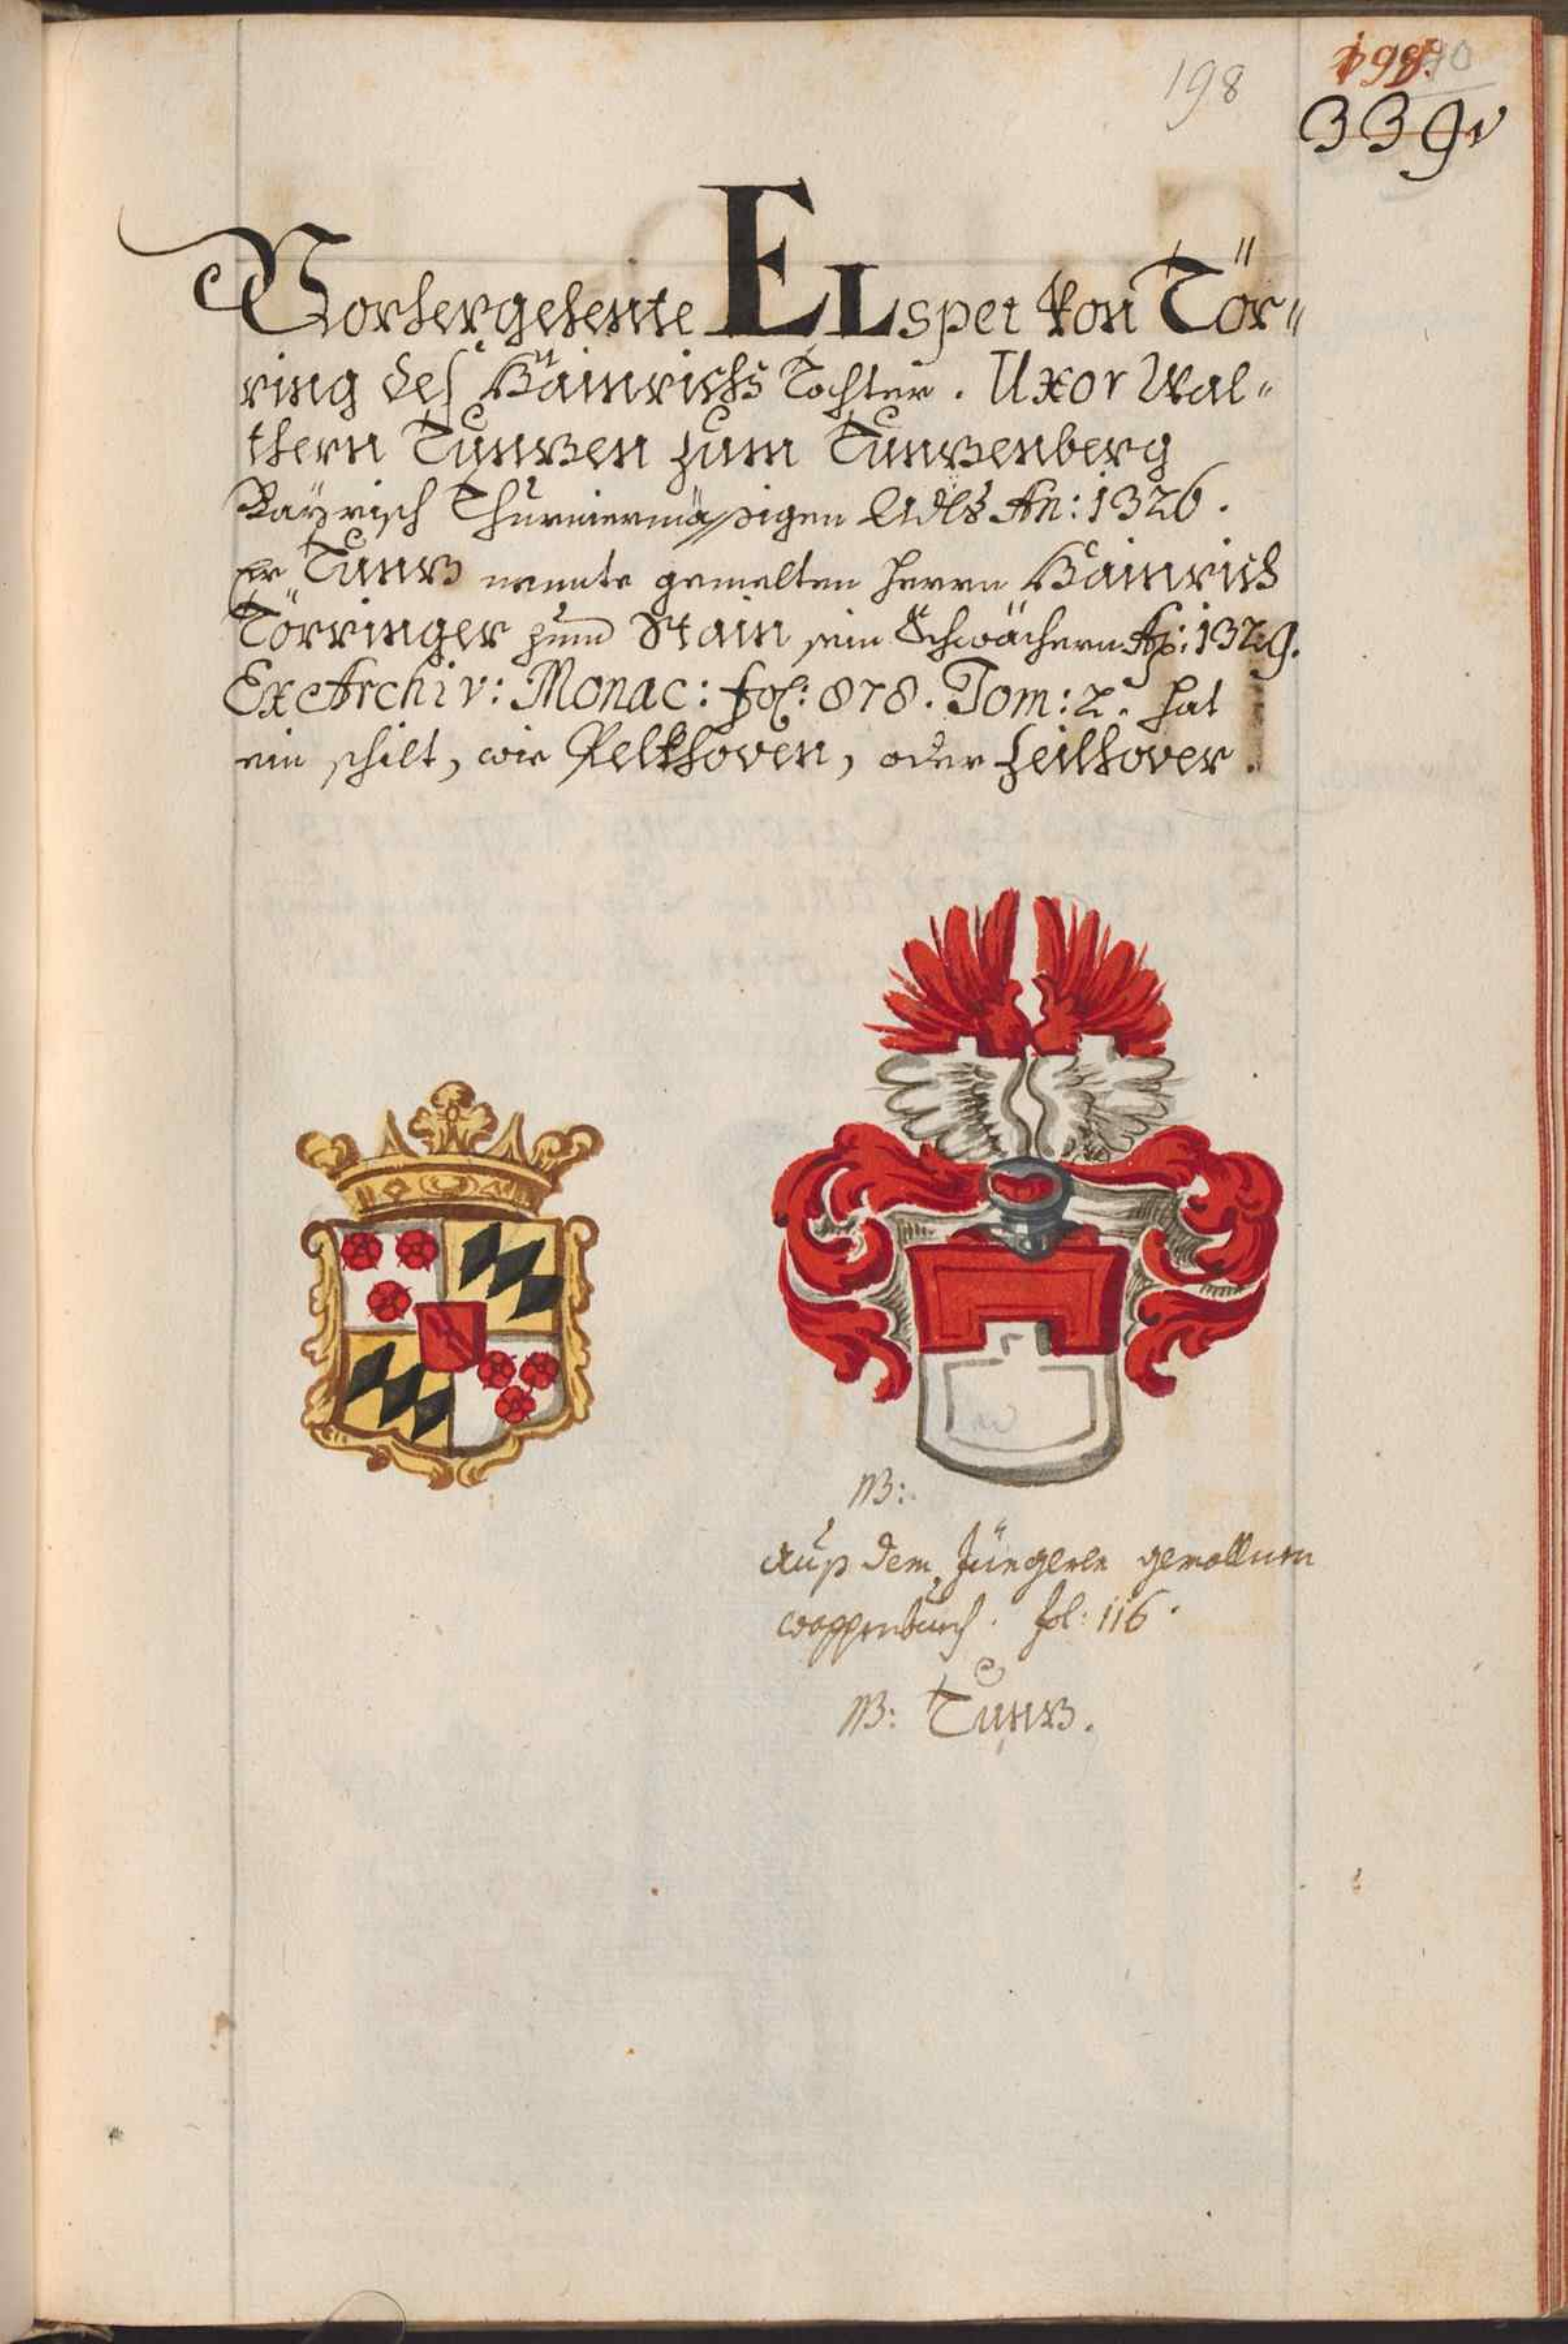 198
198.
339
Vorhergehente ELspet von Tör〃
ring des Hainrichs Tochter. Uxor Wal〃
thern Tunzen zum Tunzenberg
Bayrisch Thurniermässigen Adls An: 1326.
Er Tunz nennte gemelten herrn Hainrich
Törringer zum Stain sein Schwächern Ao: 1329.
Ex Archiv: Monac: fol: 878. Tom: 2. hat
ein schilt, wie Pelkhoven, oder Heilhover.
NB:
Auß dem Jüngern gemallnen
wappenbuech. fol: 116.
NB: Tunz.